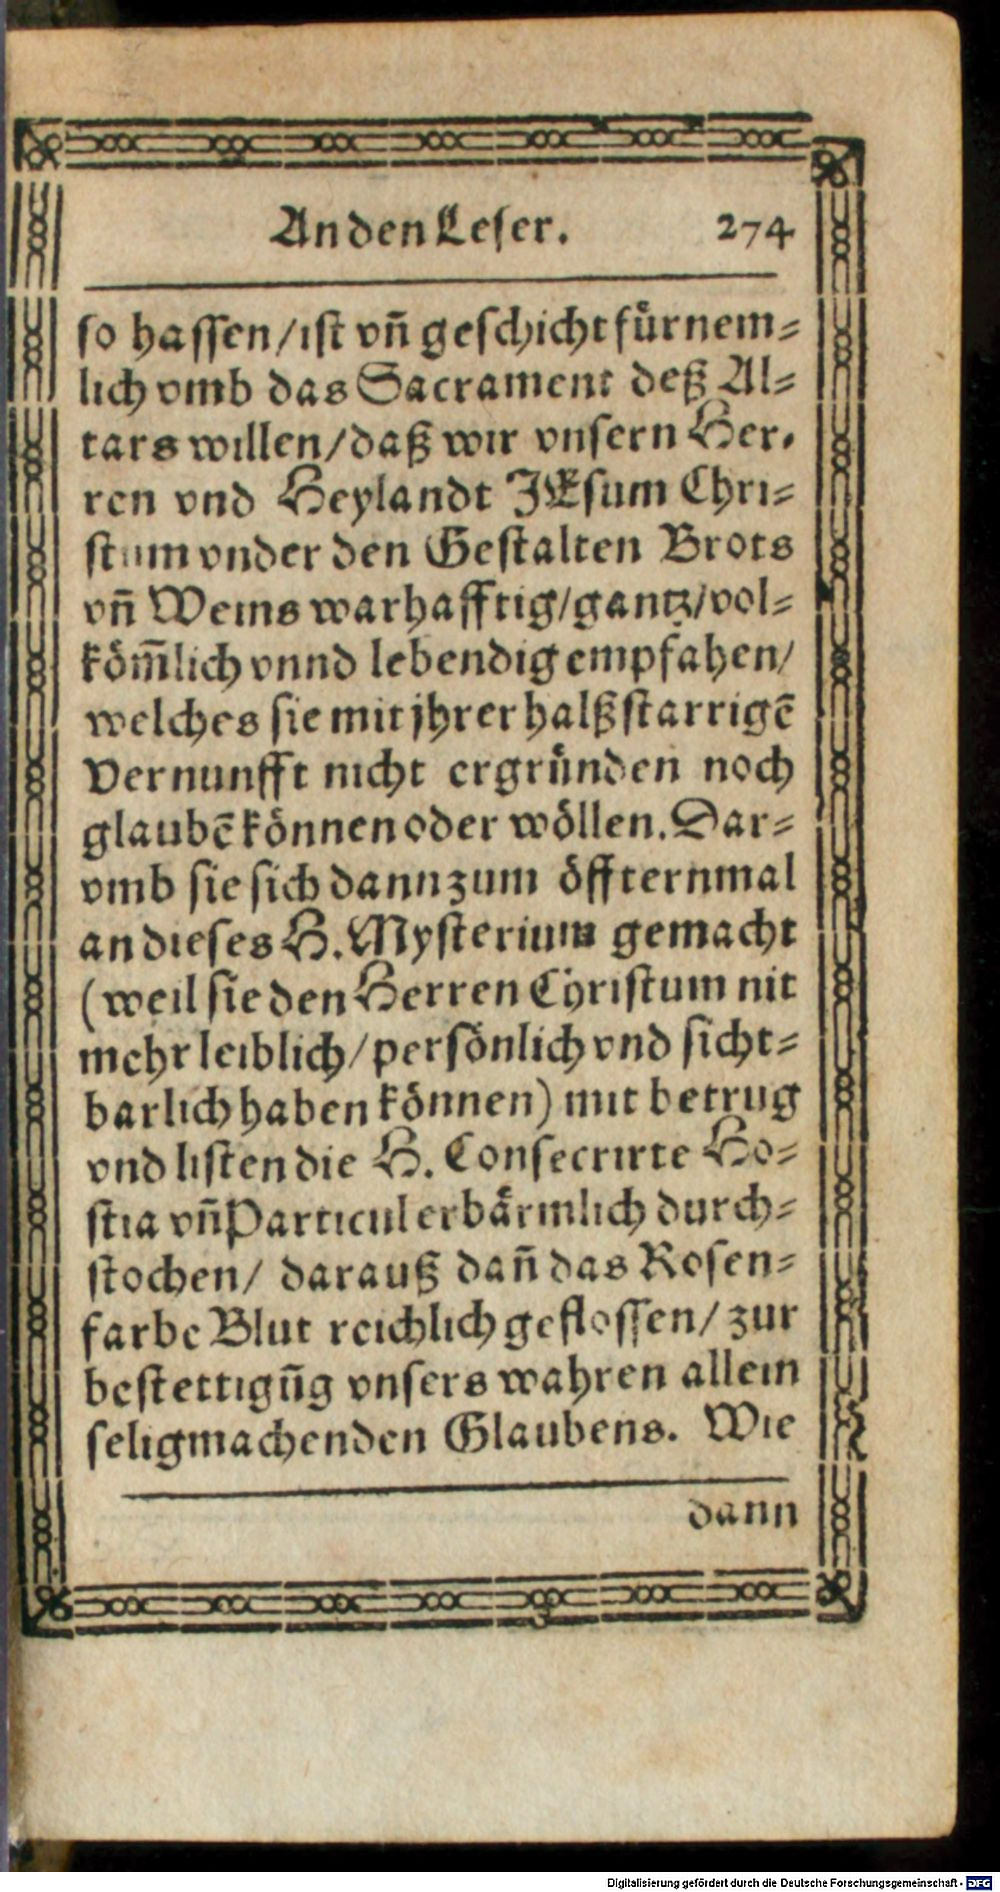 An den Leser. 274
so hassen/ist vñ geschicht fürnem-
lich vmb das Sacrament deß Al-
tars willen/daß wir vnsern Her-
ren vnd Heylandt JEsum Chri-
stum vnder den Gestalten Brots
vñ Weins warhafftig/gantz/vol-
köm̃lich vnnd lebendig empfahen/
welches sie mit jhrer halßstarrigẽ
Vernunfft nicht ergründen noch
glaubẽ können oder wöllen. Dar-
vmb sie sich dann zum öffternmal
an dieses H. Mysterium gemacht
(weil sie den Herren Christum nit
mehr leiblich/persönlich vnd sicht-
barlich haben können) mit betrug
vnd listen die H. Consecrirte Ho-
stia vñ Particul erbärmlich durch-
stochen/ darauß dañ das Rosen-
farbe Blut reichlich geflossen/zur
bestettigũg vnsers wahren allein
seligmachenden Glaubens. Wie
dann
Digitalisierung gefördert durch die Deutsche Forschungsgemeinschaft - DFG